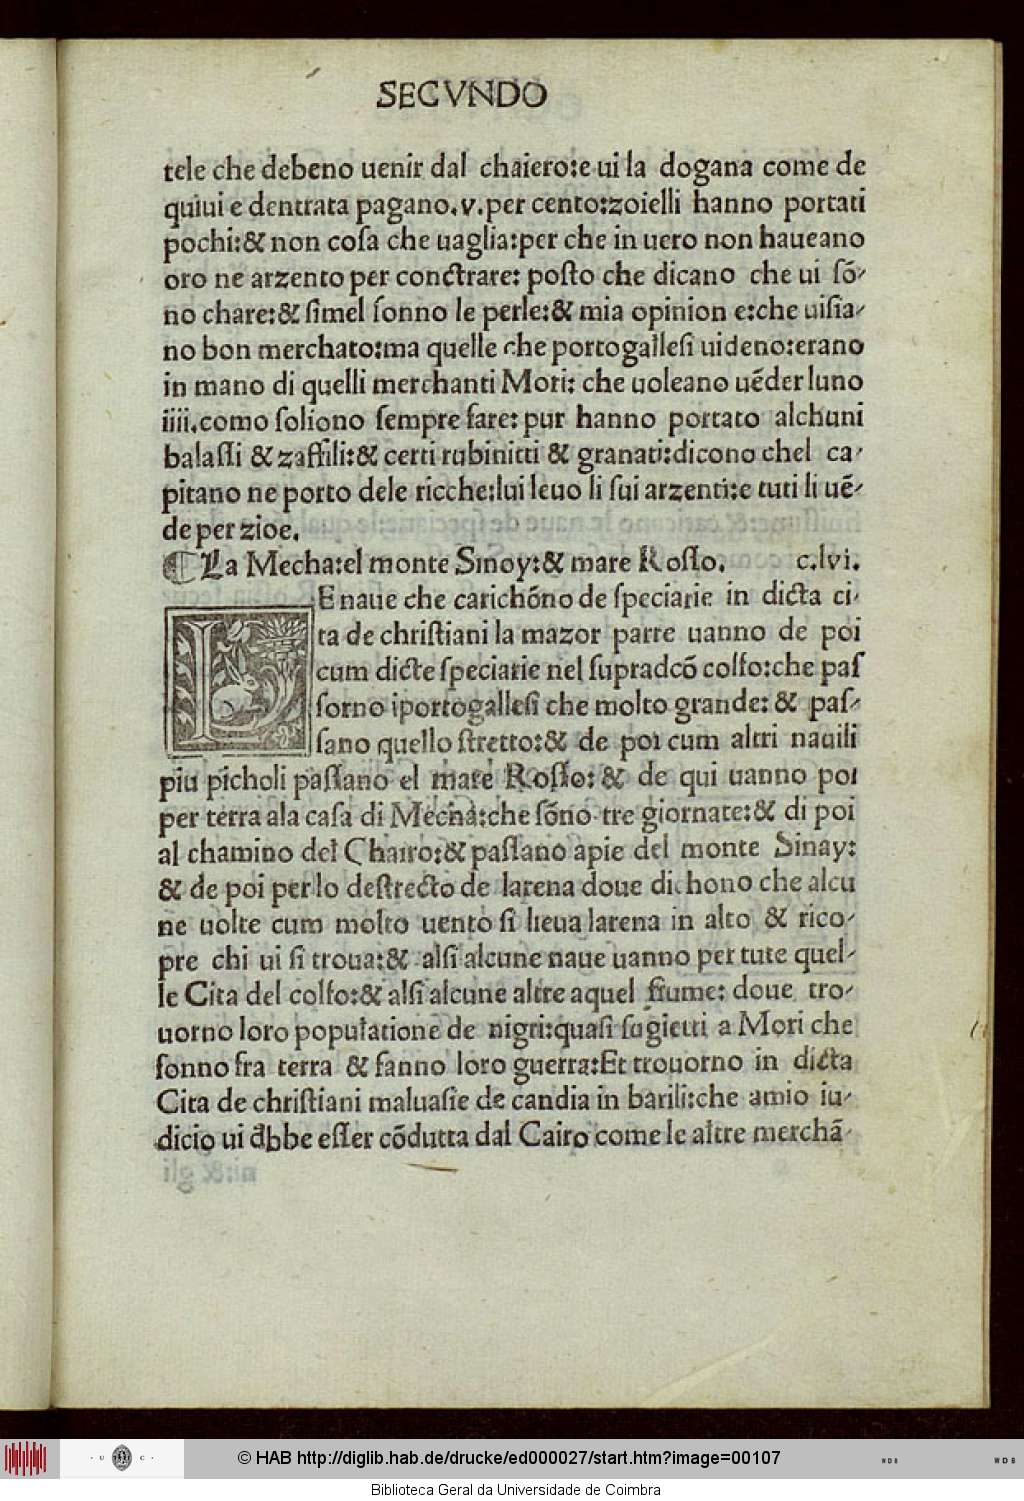 SECVNDO
tele che debeno uenir dal chaiero:e ui la dogana come de
quiui e dentrata pagano.v.per cento:zoielli hanno portati
pochi:& non coſa che uaglia:per che in uero non haueano
oro ne arzento per conctrare: poſto che dicano che ui ſõ-
no chare:& ſimel ſonno le perle:& mia opinion e:che uiſia-
no bon merchato:ma quelle che portogalleſi uideno:erano
in mano di quelli merchanti Mori: che uoleano uẽder luno
iiii.como ſoliono ſempre fare: pur hanno portato alchuni
balaſſi & zaffili:& certi rubinitti & granati:dicono chel ca-
pitano ne porto dele ricche:lui leuo li ſui arzenti:e tuti li uẽ-
de per zioe.
¶ La Mecha:el monte Sinoy:& mare Roſſo. c.lvi.
LE naue che carichõno de ſpeciarie in dicta ci-
ta de chriſtiani la mazor parte uanno de poi
cum dicte ſpeciarie nel ſupradcõ colfo:che paſ
ſorno iportogalleſi che molto grande: & paſ-
ſano quello ſtretto:& de poi cum altri nauili
piu picholi paſſano el mare Roſſo: & de qui uanno poi
per terra ala caſa di Mecha:che ſõno tre giornate:& di poi
al chamino del Chairo:& paſſano apie del monte Sinay:
& de poi per lo deſtrecto de larena doue dichono che alcu
ne uolte cum molto uento ſi lieua larena in alto & rico-
pre chi ui ſi troua:& alſi alcune naue uanno per tute quel-
le Cita del colfo:& alſi alcune altre aquel fiume: doue tro-
uorno loro populatione de nigri:quaſi ſugietti a Mori che
ſonno fra terra & fanno loro guerra:Et trouorno in dicta
Cita de chriſtiani maluaſie de candia in barili:che amio iu-
dicio ui dbbe eſſer cõdutta dal Cairo come le altre merchã-
© HAB http://diglib.hab.de/drucke/ed000027/start.htm?image=00107
· U · C ·
WDB
WDB
Biblioteca Geral da Universidade de Coimbra